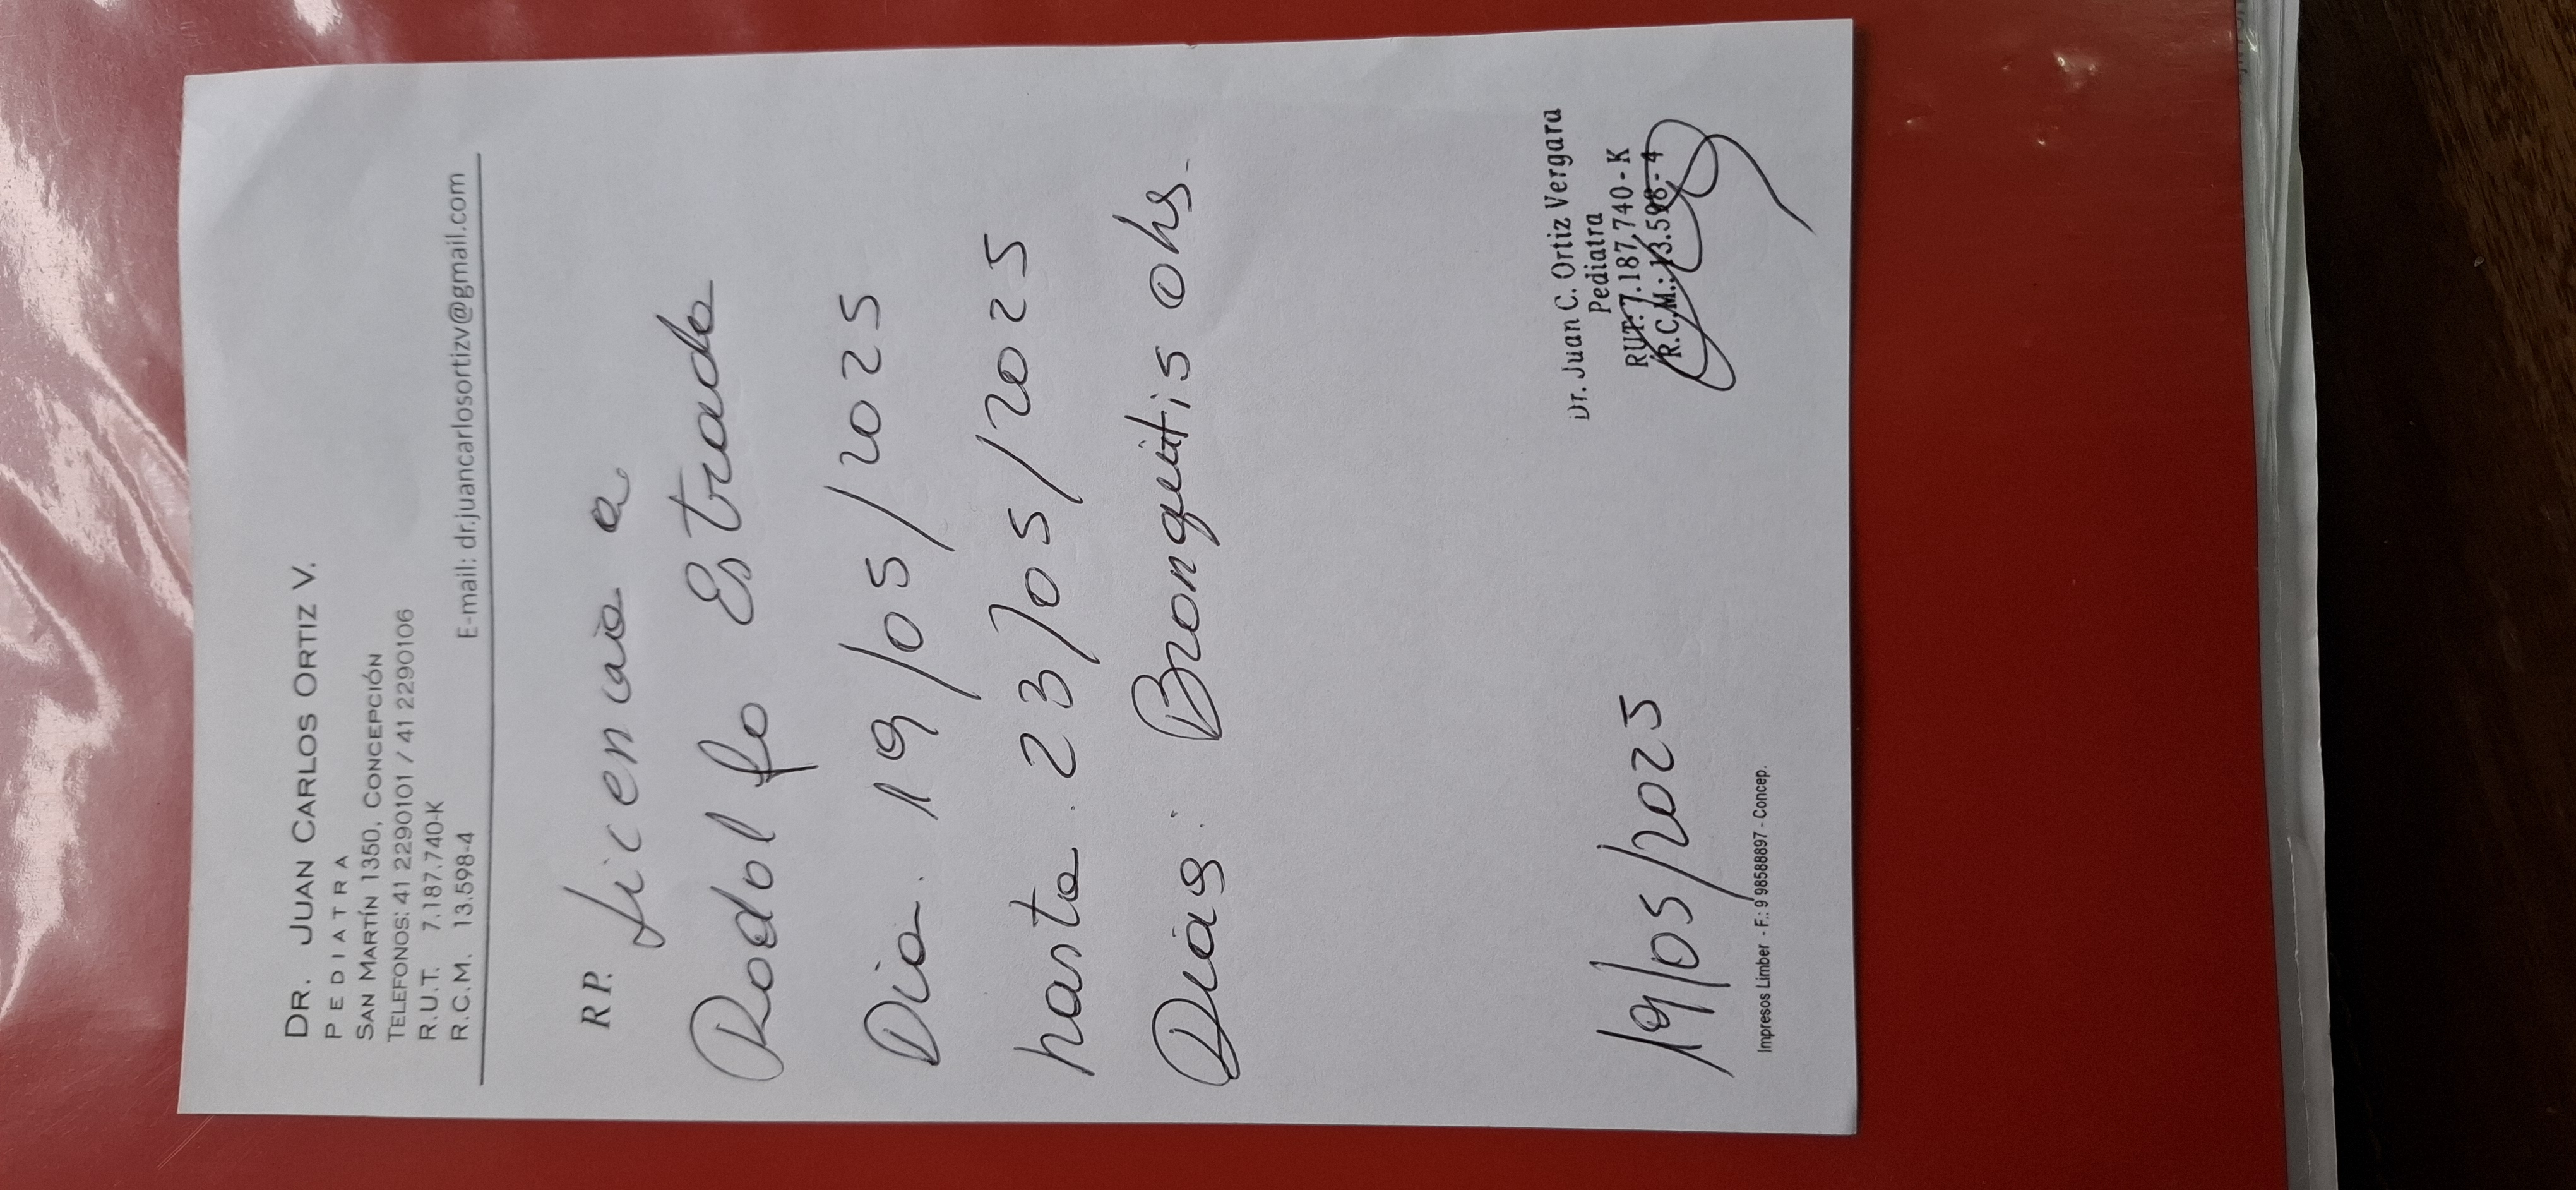 DR. JUAN CARLOS ORTIZ V.
PEDIATRA
SAN MARTÍN 1350, CONCEPCIÓN
TELEFONOS: 41 2290101 / 41 2290106
R.U.T. 7.187.740-K
R.C.M. 13.598-4 E-mail: dr.juancarlosortizv@gmail.com
RP. Licencia a
Rodolfo Estrada
Dia. 19/05/2025
hasta. 23/05/2025
Diag: Bronquitis obs.
Dr. Juan C. Ortiz Vergara
Pediatra
RUT: 7.187.740-K
R.C.M.: 13.598-4
19/05/2025
Impresos Limber - F.: 9 98588897 - Concep.